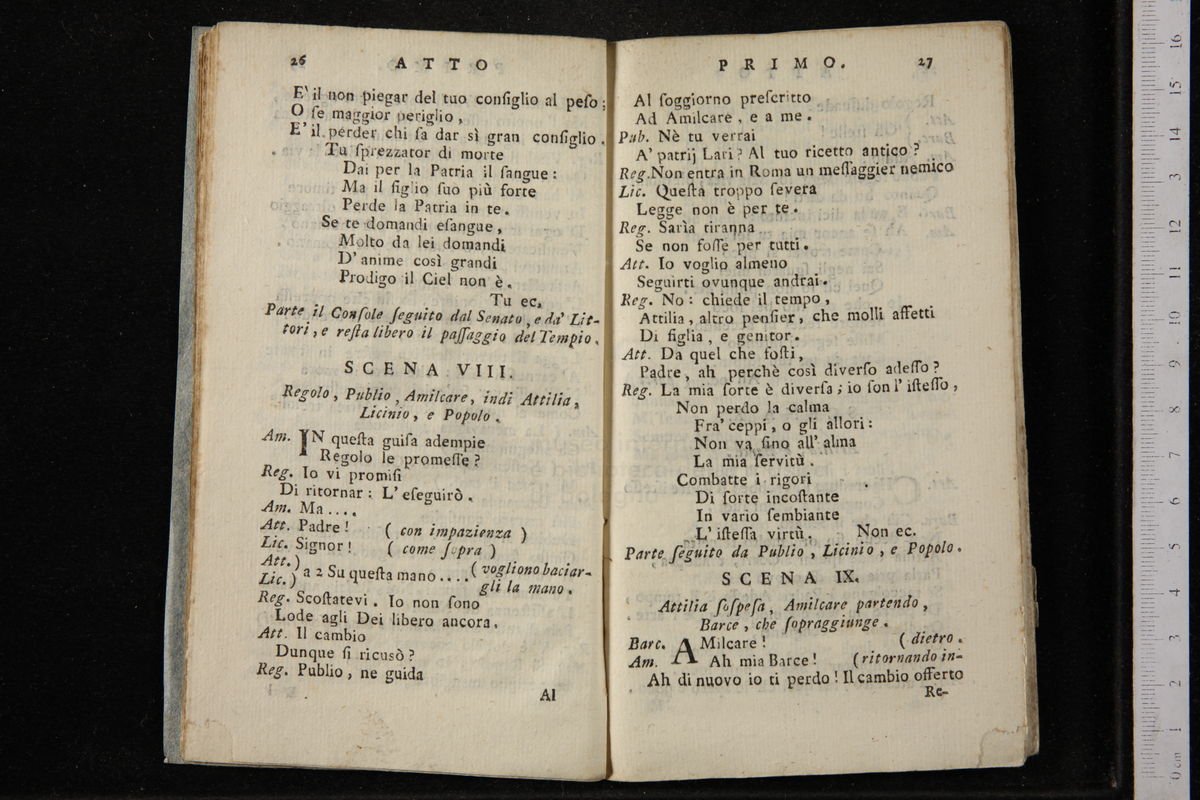 26 ATTO
E' il non piegar del tuo configlio al peſo;
O ſe maggior periglio,
E' il perder chi ſa dar sì gran configlio.
Tu ſprezzator di morte
Dai per la Patria il ſangue:
Ma il figlio ſuo più forte
Perde la Patria in te.
Se te domandi eſangue,
Molto da lei domandi
D'anime così grandi
Prodigo il Ciel non è.
Tu ec.
Parte il Conſole ſeguito dal Senato, e da' Lit-
tori, e reſta libero il paſſaggio del Tempio.
SCENA VIII.
Regolo, Publio, Amilcare, indi Attilia,
Licinio, e Popolo.
Am. IN queſta guiſa adempie
Regolo le promeſſe?
Reg. Io vi promiſi
Di ritornar: L'eſeguirò.
Am. Ma....
Att. Padre! (con impazienza)
Lic. Signor! (come ſopra)
Att.)
Lic.) a 2 Su queſta mano.... (vogliono baciar-
gli la mano.
Reg. Scoſtatevi. Io non ſono
Lode agli Dei libero ancora.
Att. Il cambio
Dunque ſi ricusò?
Reg. Publio, ne guida
Al
PRIMO. 27
Al ſoggiorno preſcritto
Ad Amilcare, e a me.
Pub. Nè tu verrai
A' patrij Lari? Al tuo ricetto antico?
Reg. Non entra in Roma un meſſaggier nemico
Lic. Queſta troppo ſevera
Legge non è per te.
Reg. Sarìa tiranna
Se non foſſe per tutti.
Att. Io voglio almeno
Seguirti ovunque andrai.
Reg. No: chiede il tempo,
Attilia, altro penſier, che molli affetti
Di figlia, e genitor.
Att. Da quel che foſti,
Padre, ah perchè così diverſo adeſſo?
Reg. La mia ſorte è diverſa; io ſon l'iſteſſo,
Non perdo la calma
Fra' ceppi, o gli allori:
Non va ſino all'alma
La mia ſervitù.
Combatte i rigori
Di ſorte incoſtante
In vario ſembiante
L'iſteſſa virtù. Non ec.
Parte ſeguito da Publio, Licinio, e Popolo.
SCENA IX.
Attilia ſoſpeſa, Amilcare partendo,
Barce, che ſopraggiunge.
Barc. AMilcare! (dietro.
Am. Ah mia Barce! (ritornando in-
Ah di nuovo io ti perdo! Il cambio offerto
Re-
16
15
14
13
12
11
10
9
8
7
6
5
4
3
2
1
0 cm